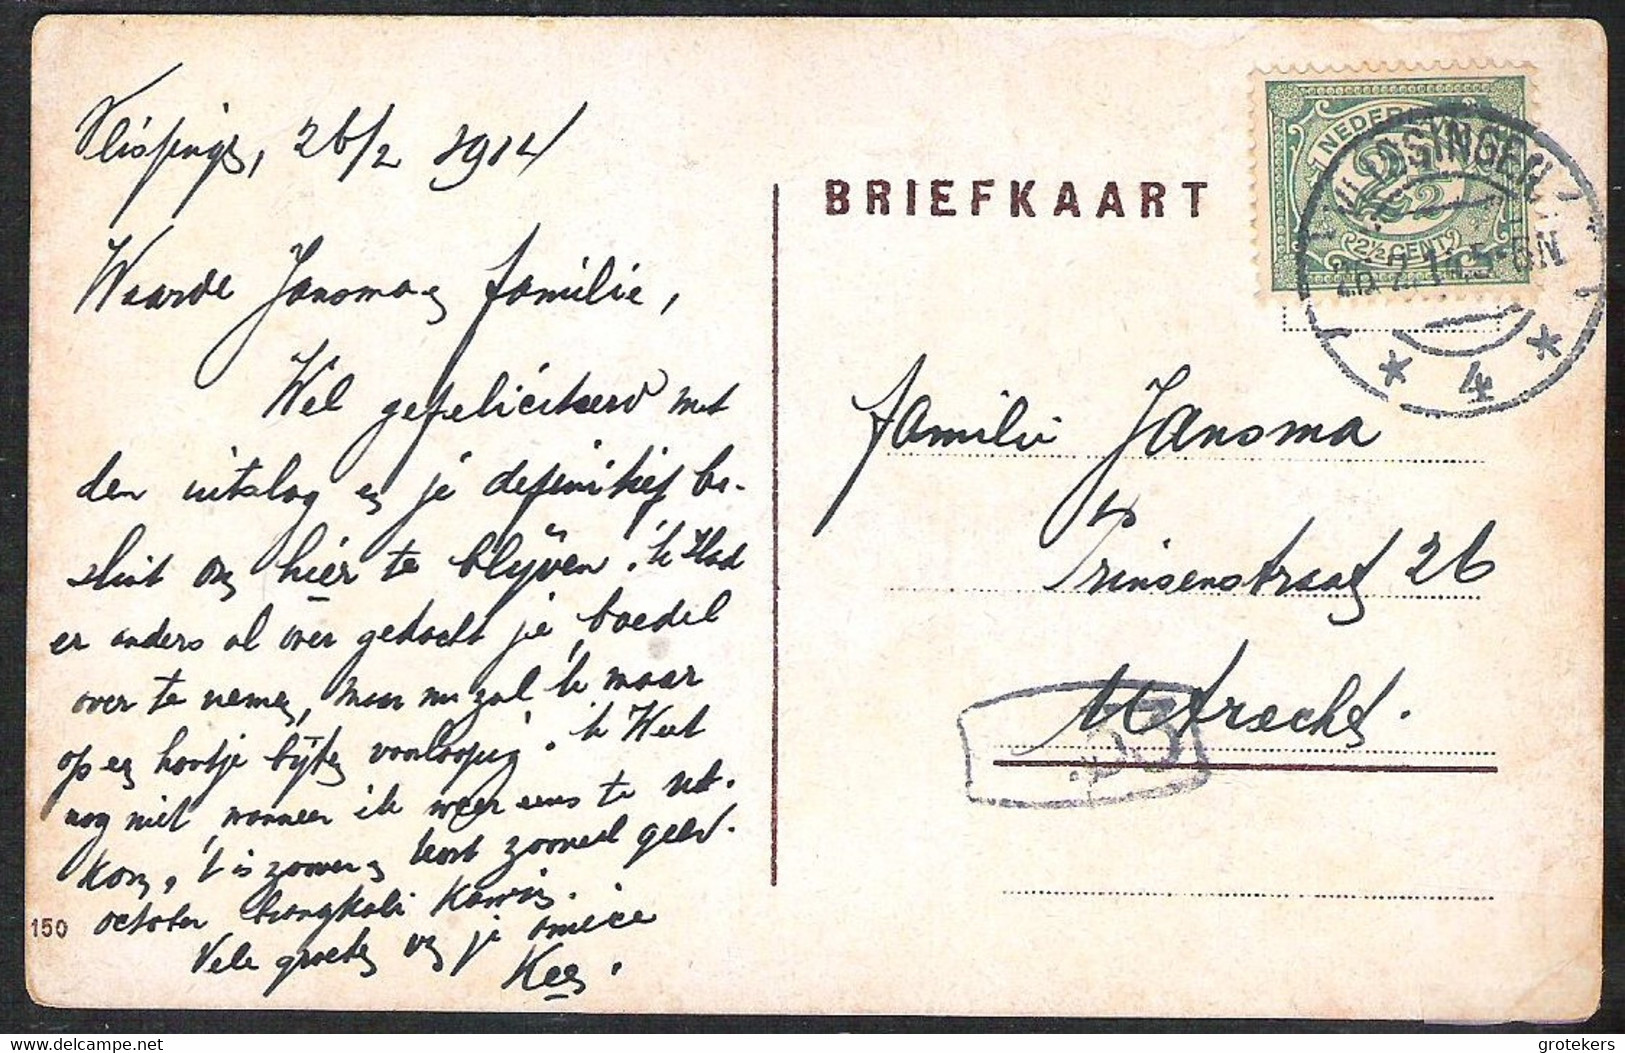 Vlissingen, 26/2 1914
Waarde Jansma en familie,
Wel gefeliciteerd met
den uitslag en je definitief be-
sluit om hier te blijven. 'k Had
er anders al over gedacht je boedel
over te nemen, maar nu zal 'k maar
op een houtje bijten voorloopig. 'k Weet
nog niet wanneer ik weer eens te Ut.
kom, 't is zomer en kost zooveel geld.
october
Vele groeten van je amice
Kees.
150
BRIEFKAART
NEDERLAND
2½
2½ CENT
VLISSINGEN
26.2.14 5-6N
* 4 *
familie Jansma
Prinsenstraat 26
Utrecht.